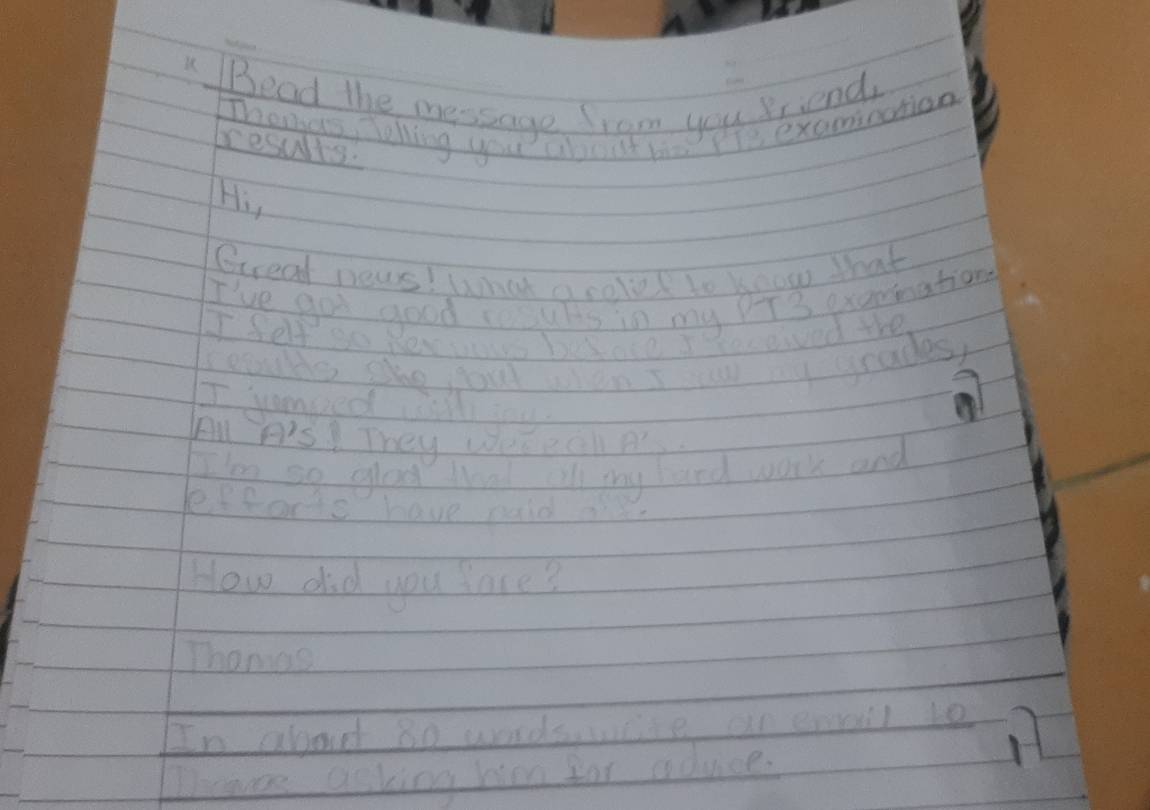 Read the message from you friend,
Thomas, telling you about his PT3 examination
results.
Hi,
Great news! What a relief to know that
I've got good results in my PT3 examination.
I felt so nervous before I received the
results, but when I saw my grades,
I jumped with joy.
All A's! They were all A's.
I'm so glad that all my hard work and
efforts have paid off.
How did you fare?
Thomas
In about 80 words, write an email to
Thomas asking him for advice.